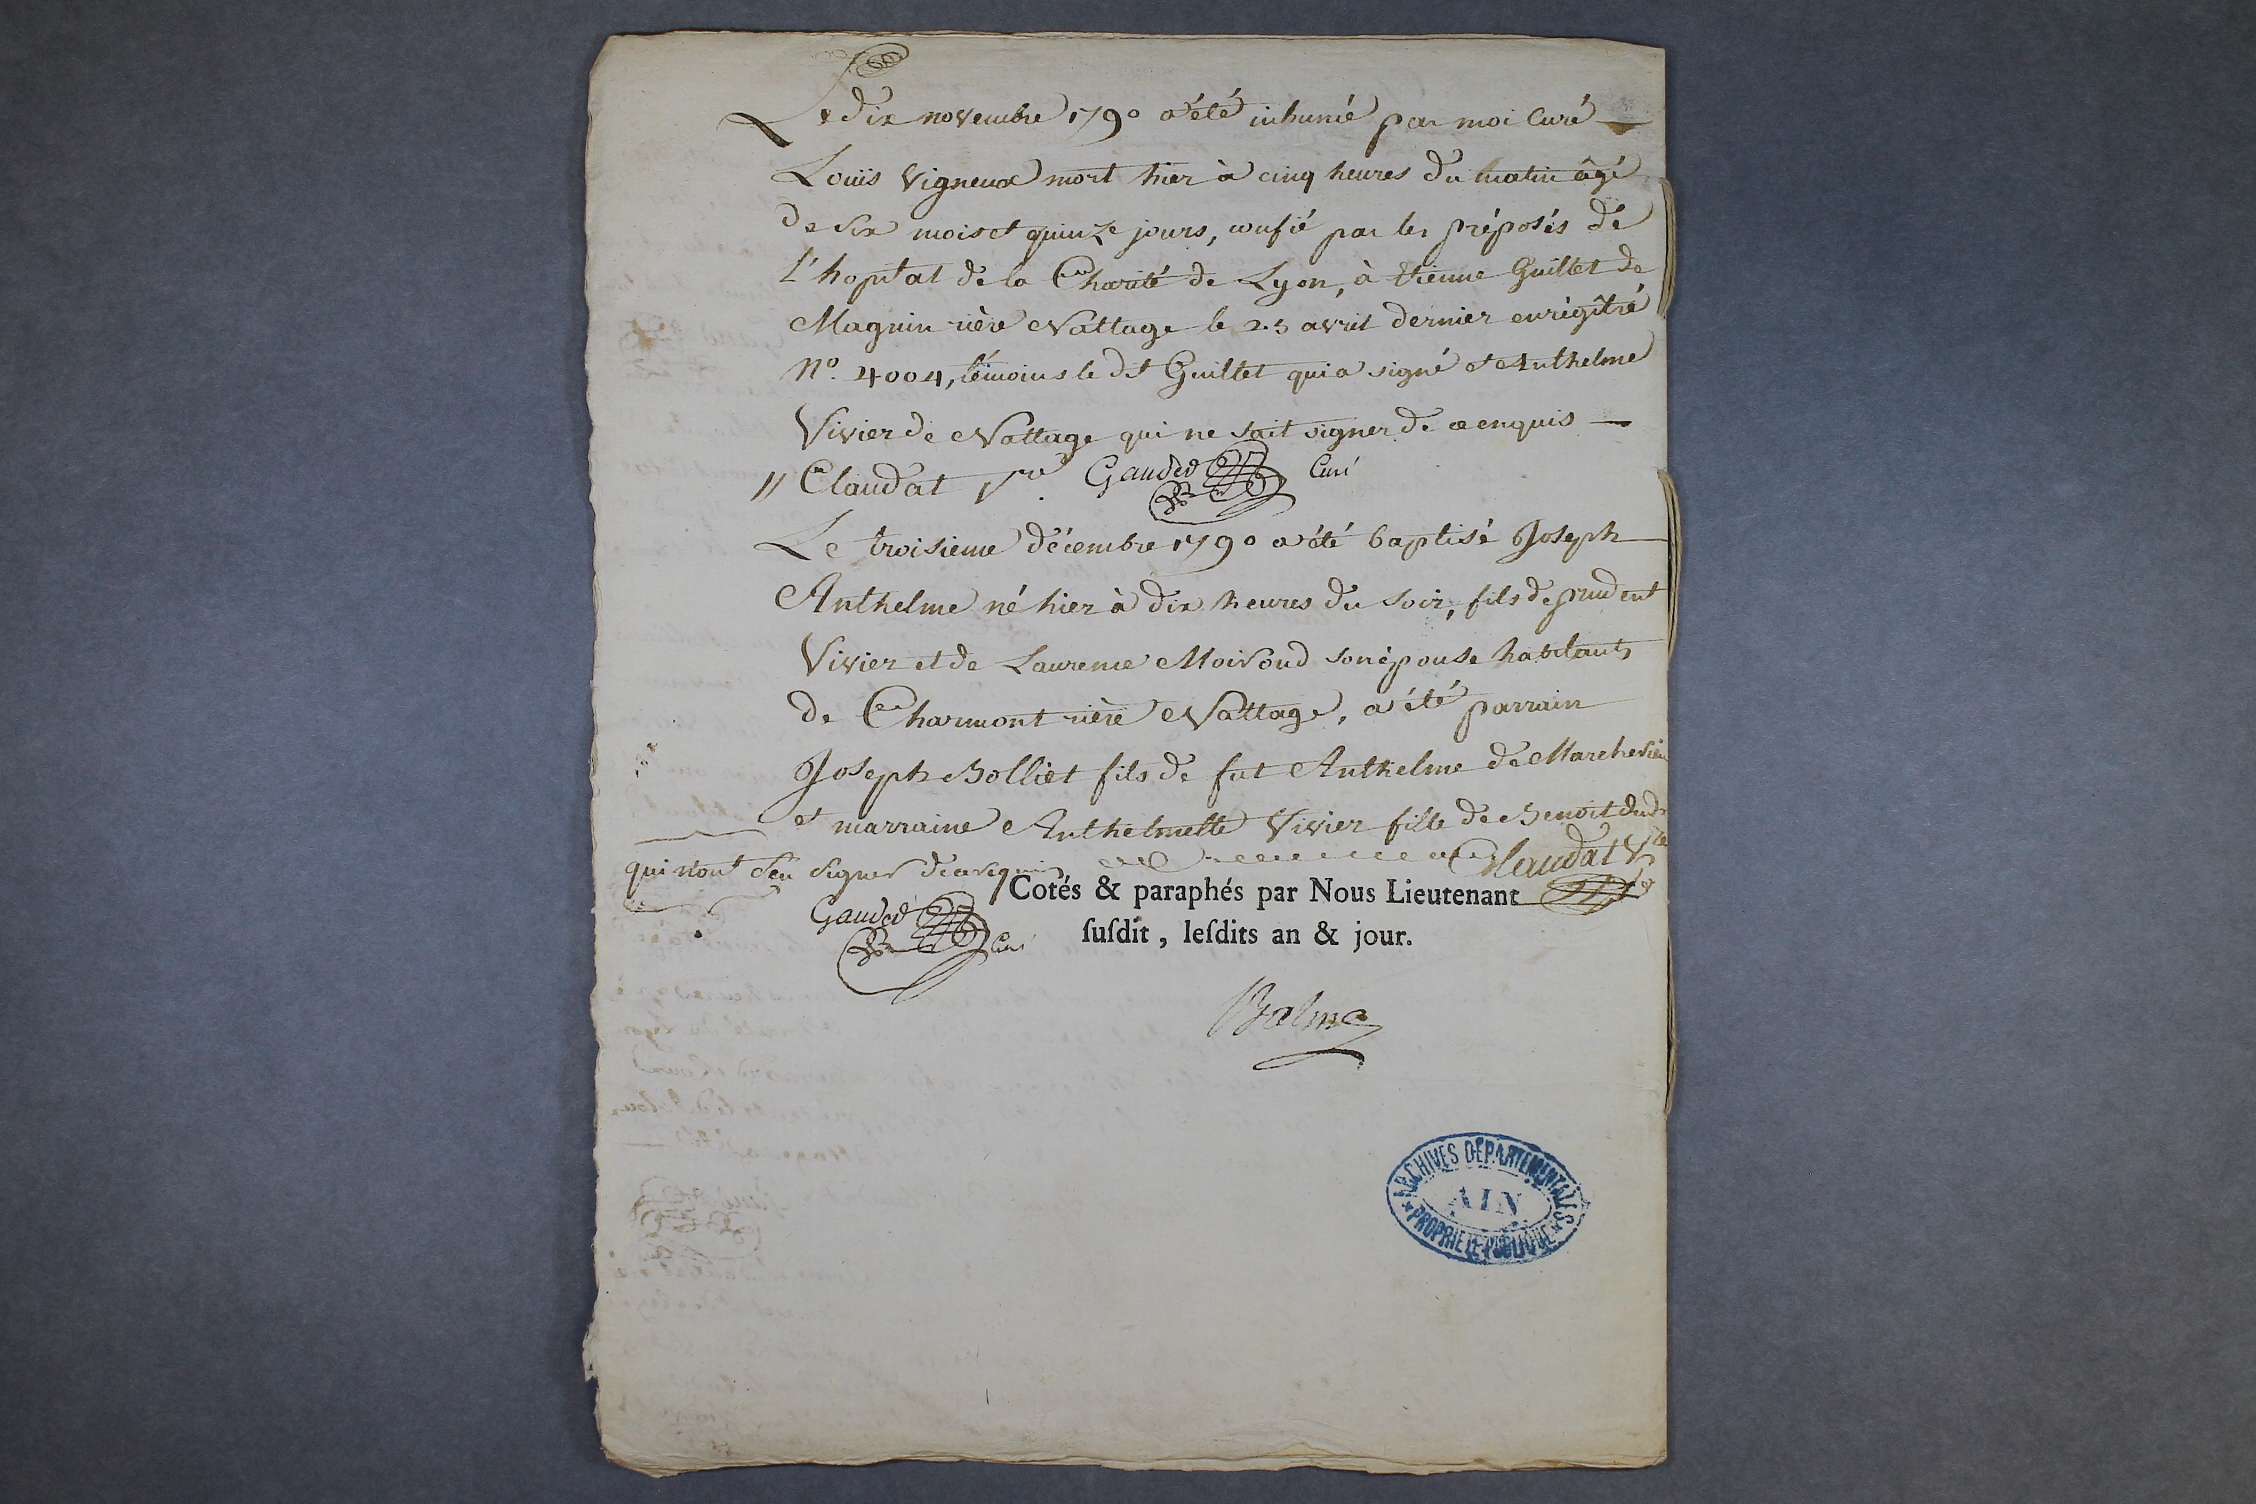 Le dix novembre 1790 a été inhumé par moi Curé
Louïs Vigneux mort hier à cinq heures du matin âgé
de six mois et quinze jours, confié par les préposés de
l'hopital de la Charité de Lyon, à Etienne Guillet de
Magnin rière Nattage le 25 avril dernier enrégîtré
N°. 4004, témoins le dit Guillet qui a signé et Anthelme
Vivier de Nattage qui ne sait signer de ce enquis
Claudat Gaudet Curé
Le troisieme décembre 1790 a été baptisé Joseph
Anthelme né hier à dix heures du soir, fils de prudent
Vivier et de Laurence Moiroud son épouse habitants
de Charmont rière Nattage, a été parrain
Joseph Bolliet fils de fut Anthelme de
et marraine Anthelmette Vivier fille de Benoit
qui n'ont seu signer Claudat
Cotés & paraphés par Nous Lieutenant
Gaudet Curé
ſuſdit, leſdits an & jour.
Balme
ARCHIVES DÉPARTEMENTALES
AIN
PROPRIÉTÉ PUBLIQUE